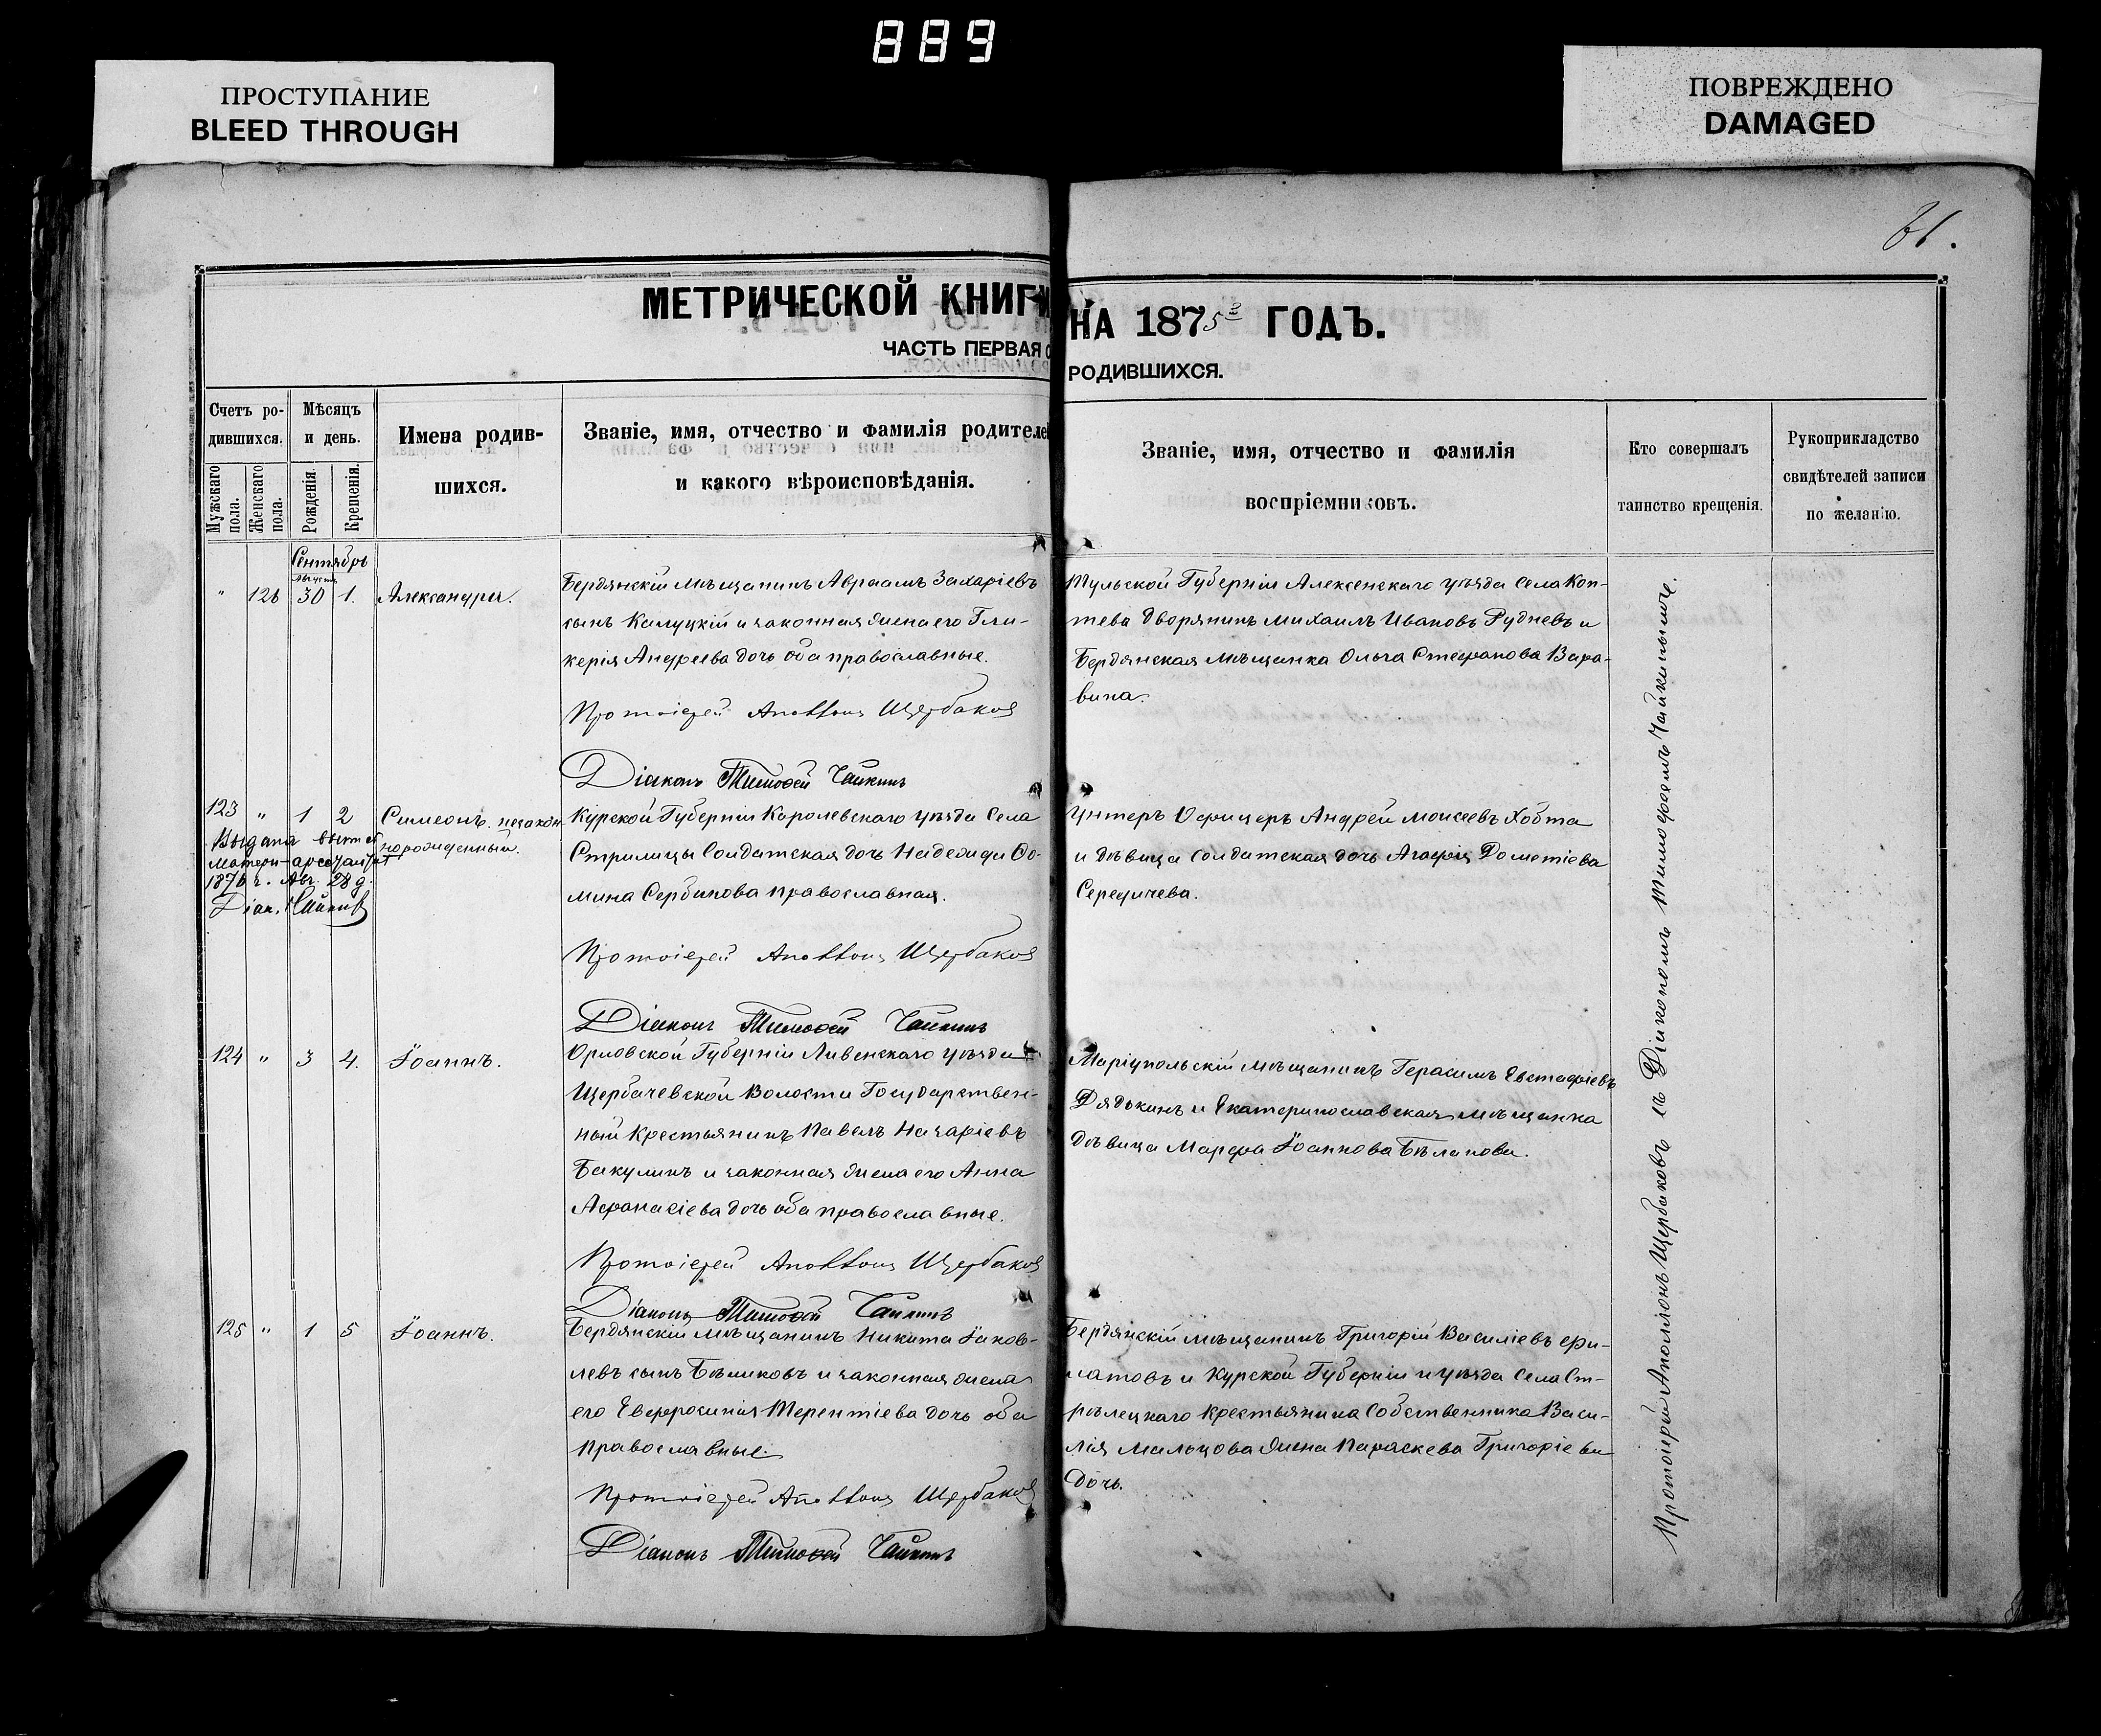 889
ПРОСТУПАНИЕ
BLEED THROUGH
ПОВРЕЖДЕНО
DAMAGED
61.
МЕТРИЧЕСКОЙ КНИГИ
НА 1875 ГОДЪ.
ЧАСТЬ ПЕРВАЯ О
РОДИВШИХСЯ.
Счетъ ро-
дившихся.
Мужскаго пола.
Женскаго пола.
Мѣсяцъ
и день.
Рожденія.
Крещенія.
Имена родив-
шихся.
Званіе, имя, отчество и фамилія родителей
и какого вѣроисповѣданія.
Званіе, имя, отчество и фамилія
воспріемниковъ.
Кто совершалъ
таинство крещенія.
Рукоприкладство
свидѣтелей записи
по желанію.
Сентябрь
Августа
" 126 30 1. Александра.
Бердянскій мѣщанинъ Авраамъ Захаріевъ
сынъ Калуцкій и законная жена его Гли-
керія Андреева дочь оба православные.
Протоіерей Аполлонъ Щербаковъ
Діаконъ Тимофей Чайкинъ
Тульской Губерніи Алексенскаго уѣзда села Коп-
тева дворянинъ Михаилъ Ивановъ Рудневъ и
Бердянская мѣщанка Ольга Стефанова Вара-
вина.
123 " 1 2 Симеонъ. незакон
норожденный.
Выдана выпись
матери
1876 г. Авг. 28 д.
Діак. Чайкинъ
Курской Губерніи Королевскаго уѣзда села
Стрилицы Солдатская дочь Надежда Фо-
мина Сербинова православная.
Протоіерей Аполлонъ Щербаковъ
Діаконъ Тимофей Чайкинъ
Унтеръ Офицеръ Андрей Моисеевъ Хобта
и дѣвица солдатская дочь Агафія Дометіева
Середичева.
124 " 3 4. Іоаннъ.
Орловской Губерніи Ливенскаго уѣзда
Щербачевской Волости Государствен-
ный крестьянинъ Павелъ Назаріевъ
Бакулинъ и законная жена его Анна
Афанасіева дочь оба православные.
Протоіерей Аполлонъ Щербаковъ
Діаконъ Тимофей Чайкинъ
Маріупольскій мѣщанинъ Герасимъ Евстафіевъ
Дядькинъ и Екатеринославская мѣщанка
дѣвица Марфа Іоаннова Бѣланова.
125 " 1 5 Іоаннъ.
Бердянскій мѣщанинъ Никита Іаков-
левъ сынъ Бѣликовъ и законная жена
его Евфросинія Терентіева дочь оба
православные.
Протоіерей Аполлонъ Щербаковъ
Діаконъ Тимофей Чайкинъ
Бердянскій мѣщанинъ Григорій Василіевъ Фи-
латовъ и Курской Губерніи и уѣзда села Ст-
рѣлецкаго крестьянина собственника Васи-
лія Мальцова жена Параскева Григоріева
дочь.
Протоіерей Аполлонъ Щербаковъ съ Діакономъ Тимофеемъ Чайкинымъ.